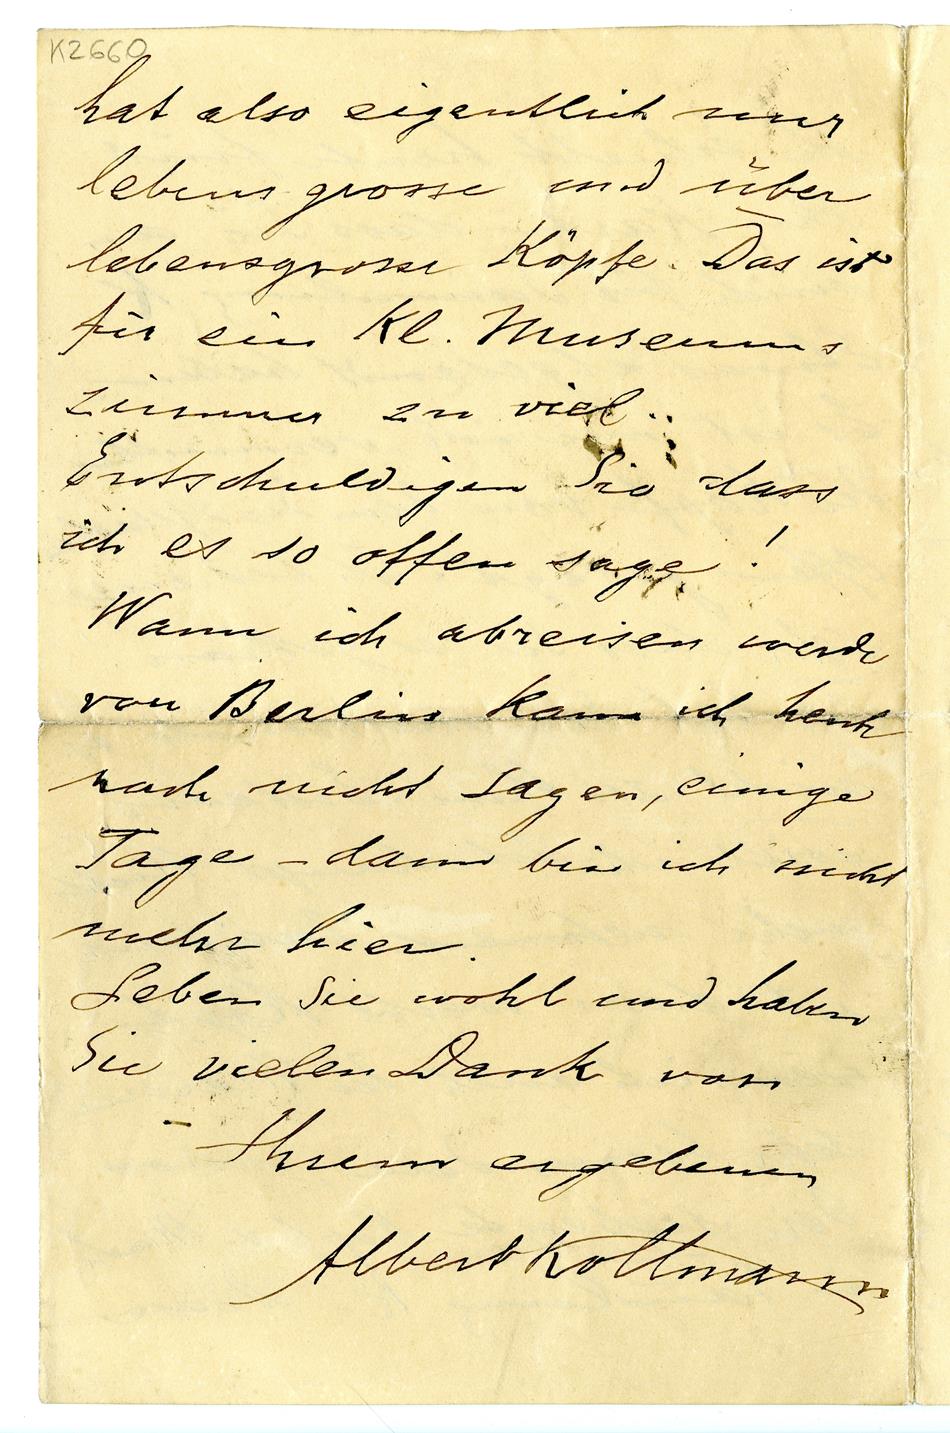 K2660
hat also eigentlich nur
lebensgrosse und über
lebensgrosse Köpfe. Das ist
für ein Kl. Museums
zimmer zu viel..
Entschuldigen Sie dass
ich es so offen sage!
Wann ich abreisen werde
von Berlin kann ich heute
noch nicht sagen, einige
Tage – dann bin ich nicht
mehr hier.
Leben Sie wohl und haben
Sie vielen Dank von
Ihrem ergebenen
Albert Kollmann